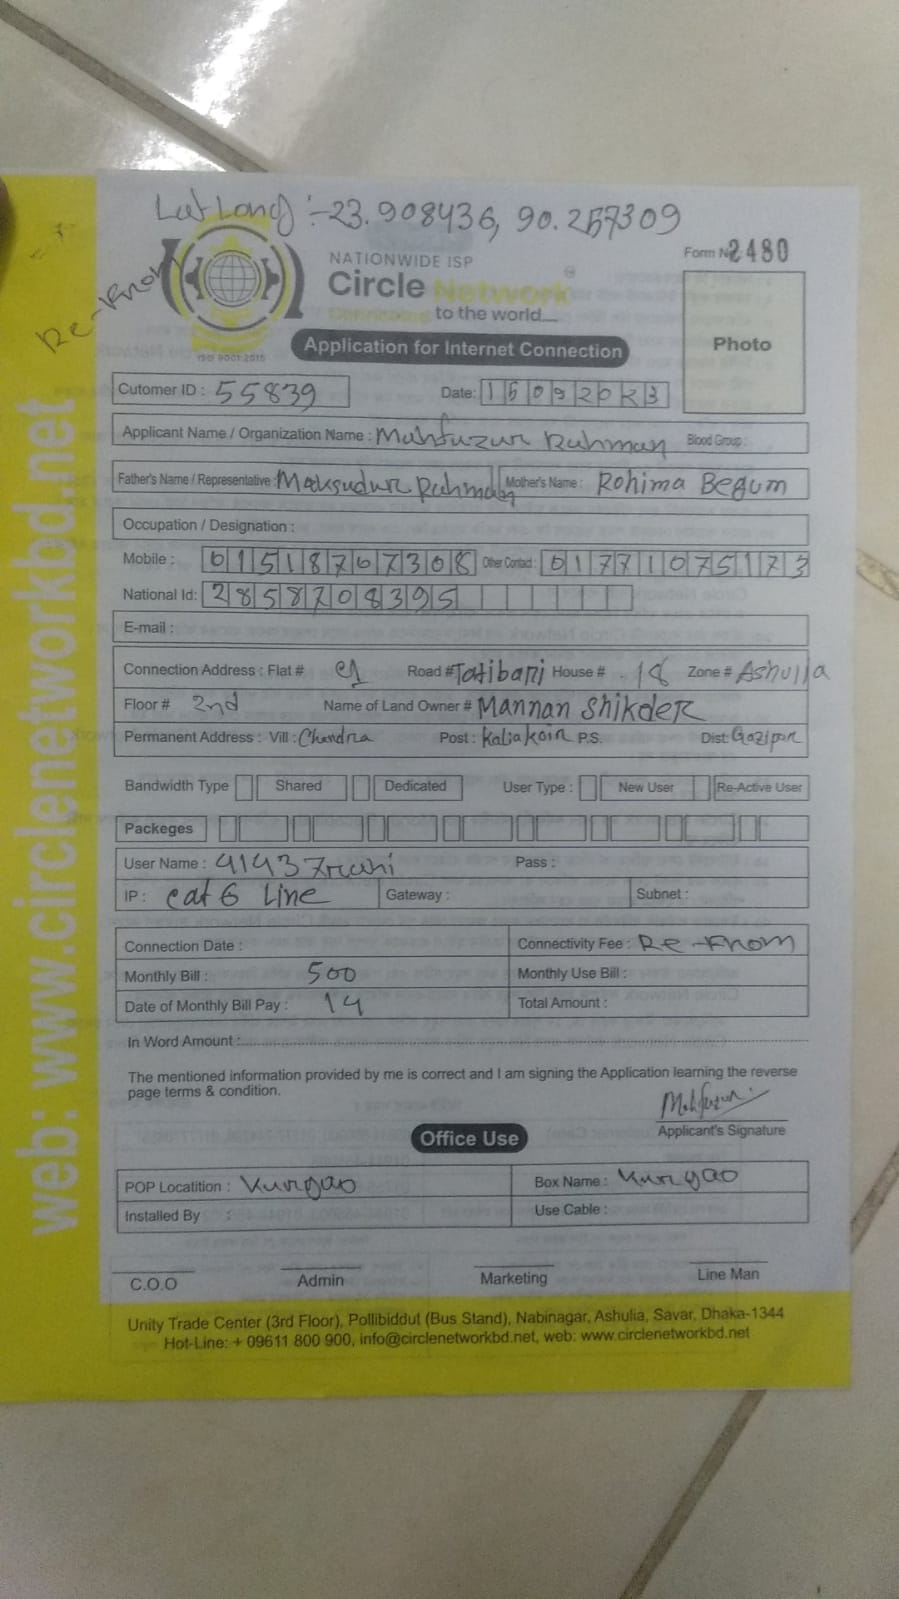 Lat Long :- 23.908436, 90.257309
Re-Knom
NATIONWIDE ISP
Form No 2480
Circle Network
Connecting to the world....
ISO 9001:2015
Application for Internet Connection
Photo
Cutomer ID : 55839 Date: 16092023
Applicant Name / Organization Name : Mahfuzur Rahman Blood Group:
Father's Name / Representative : Maksudur Rahman Mother's Name : Rohima Begum
Occupation / Designation :
Mobile : 01518767308 Other Contact : 01771075173
National Id: 2858708395
E-mail :
Connection Address : Flat # e1 Road # Tatibari House # 18 Zone # Ashulia
Floor # 2nd Name of Land Owner # Mannan Shikder
Permanent Address : Vill : Chandra Post : Kaliakoir P.S. Dist: Gazipur
Bandwidth Type Shared Dedicated User Type : New User Re-Active User
Packeges
User Name : Pass :
IP : cat 6 Line Gateway : Subnet :
Connection Date : Connectivity Fee : Re-Knom
Monthly Bill : 500 Monthly Use Bill :
Date of Monthly Bill Pay : 14 Total Amount :
In Word Amount :
The mentioned information provided by me is correct and I am signing the Application learning the reverse
page terms & condition.
Mahfuzur
Applicant's Signature
Office Use
POP Locatition : Kurgao Box Name : Kurgao
Installed By : Use Cable :
C.O.O Admin Marketing Line Man
Unity Trade Center (3rd Floor), Pollibiddut (Bus Stand), Nabinagar, Ashulia, Savar, Dhaka-1344
Hot-Line: + 09611 800 900, info@circlenetworkbd.net, web: www.circlenetworkbd.net
web: www.circlenetworkbd.net